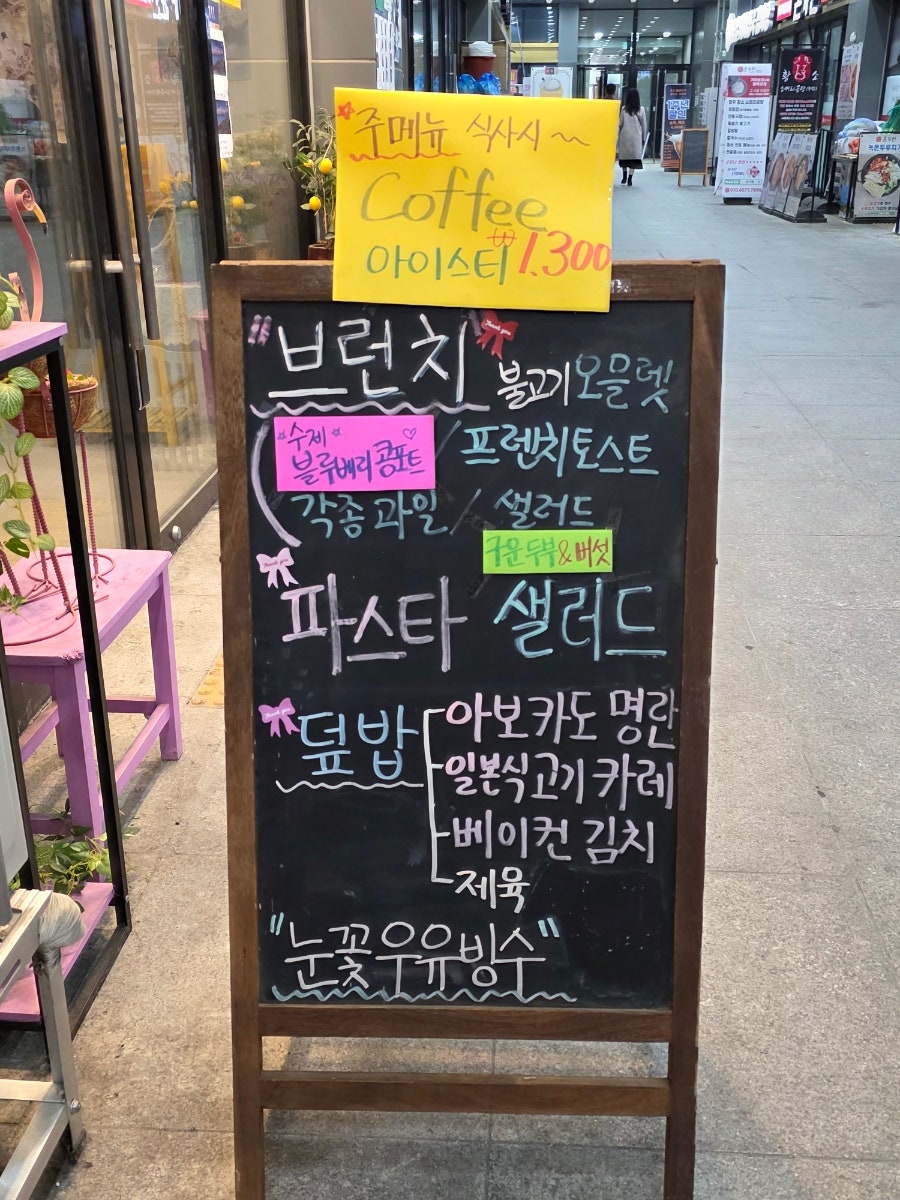 주메뉴 식사시 ~
Coffee
아이스티 ₩1.300
"브런치
불고기 오믈렛
수제
블루베리 콤포트
/ 프렌치토스트
각종 과일 / 샐러드
구운 두부 & 버섯
파스타 샐러드
덮밥
아보카도 명란
일본식고기 카레
베이컨 김치
제육
"눈꽃우유빙수"